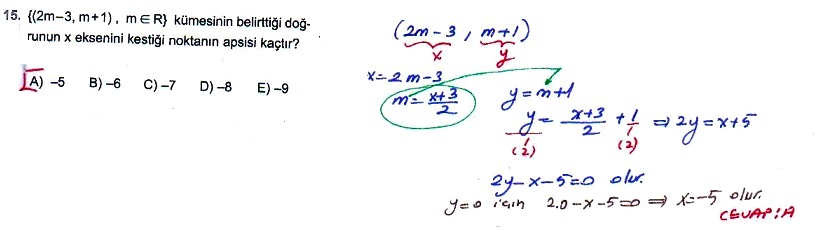 15. {(2m–3, m+1), m ∈ R} kümesinin belirttiği doğ-
runun x eksenini kestiği noktanın apsisi kaçtır?
A) –5 B) –6 C) –7 D) –8 E) –9
(2m-3, m+1)
x y
x=2m-3
m=x+3/2
y=m+1
y=x+3/2+1/1 ⇒ 2y=x+5
(2) (2)
2y-x-5=0 olur.
y=0 için 2.0-x-5=0 ⇒ x=-5 olur.
CEVAP:A